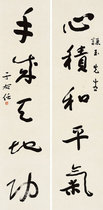 先生
心積和平氣
手成天地功
于右任